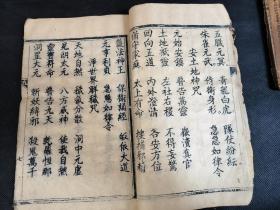 五臟元冥 青龍白虎 隊仗紛紜
朱雀元武 侍衛身形 急急如律令
安土地神咒
元始安鎮 普告萬靈 嶽瀆真官
土地祇靈 左社右稷 不得妄驚
回向正道 內外澄清 各安方位
備守家庭 太上有命 搜捕邪精
護法神王 保衛誦經 皈依大道
元亨利貞 急急如律令
淨世界解穢咒
天地自然 穢氣分散 洞中元虛
晃朗太元 八方威神 使我自然
靈寶符命 普告九天 乾羅怛那
洞罡太元 斬妖縛邪 殺鬼萬千
七